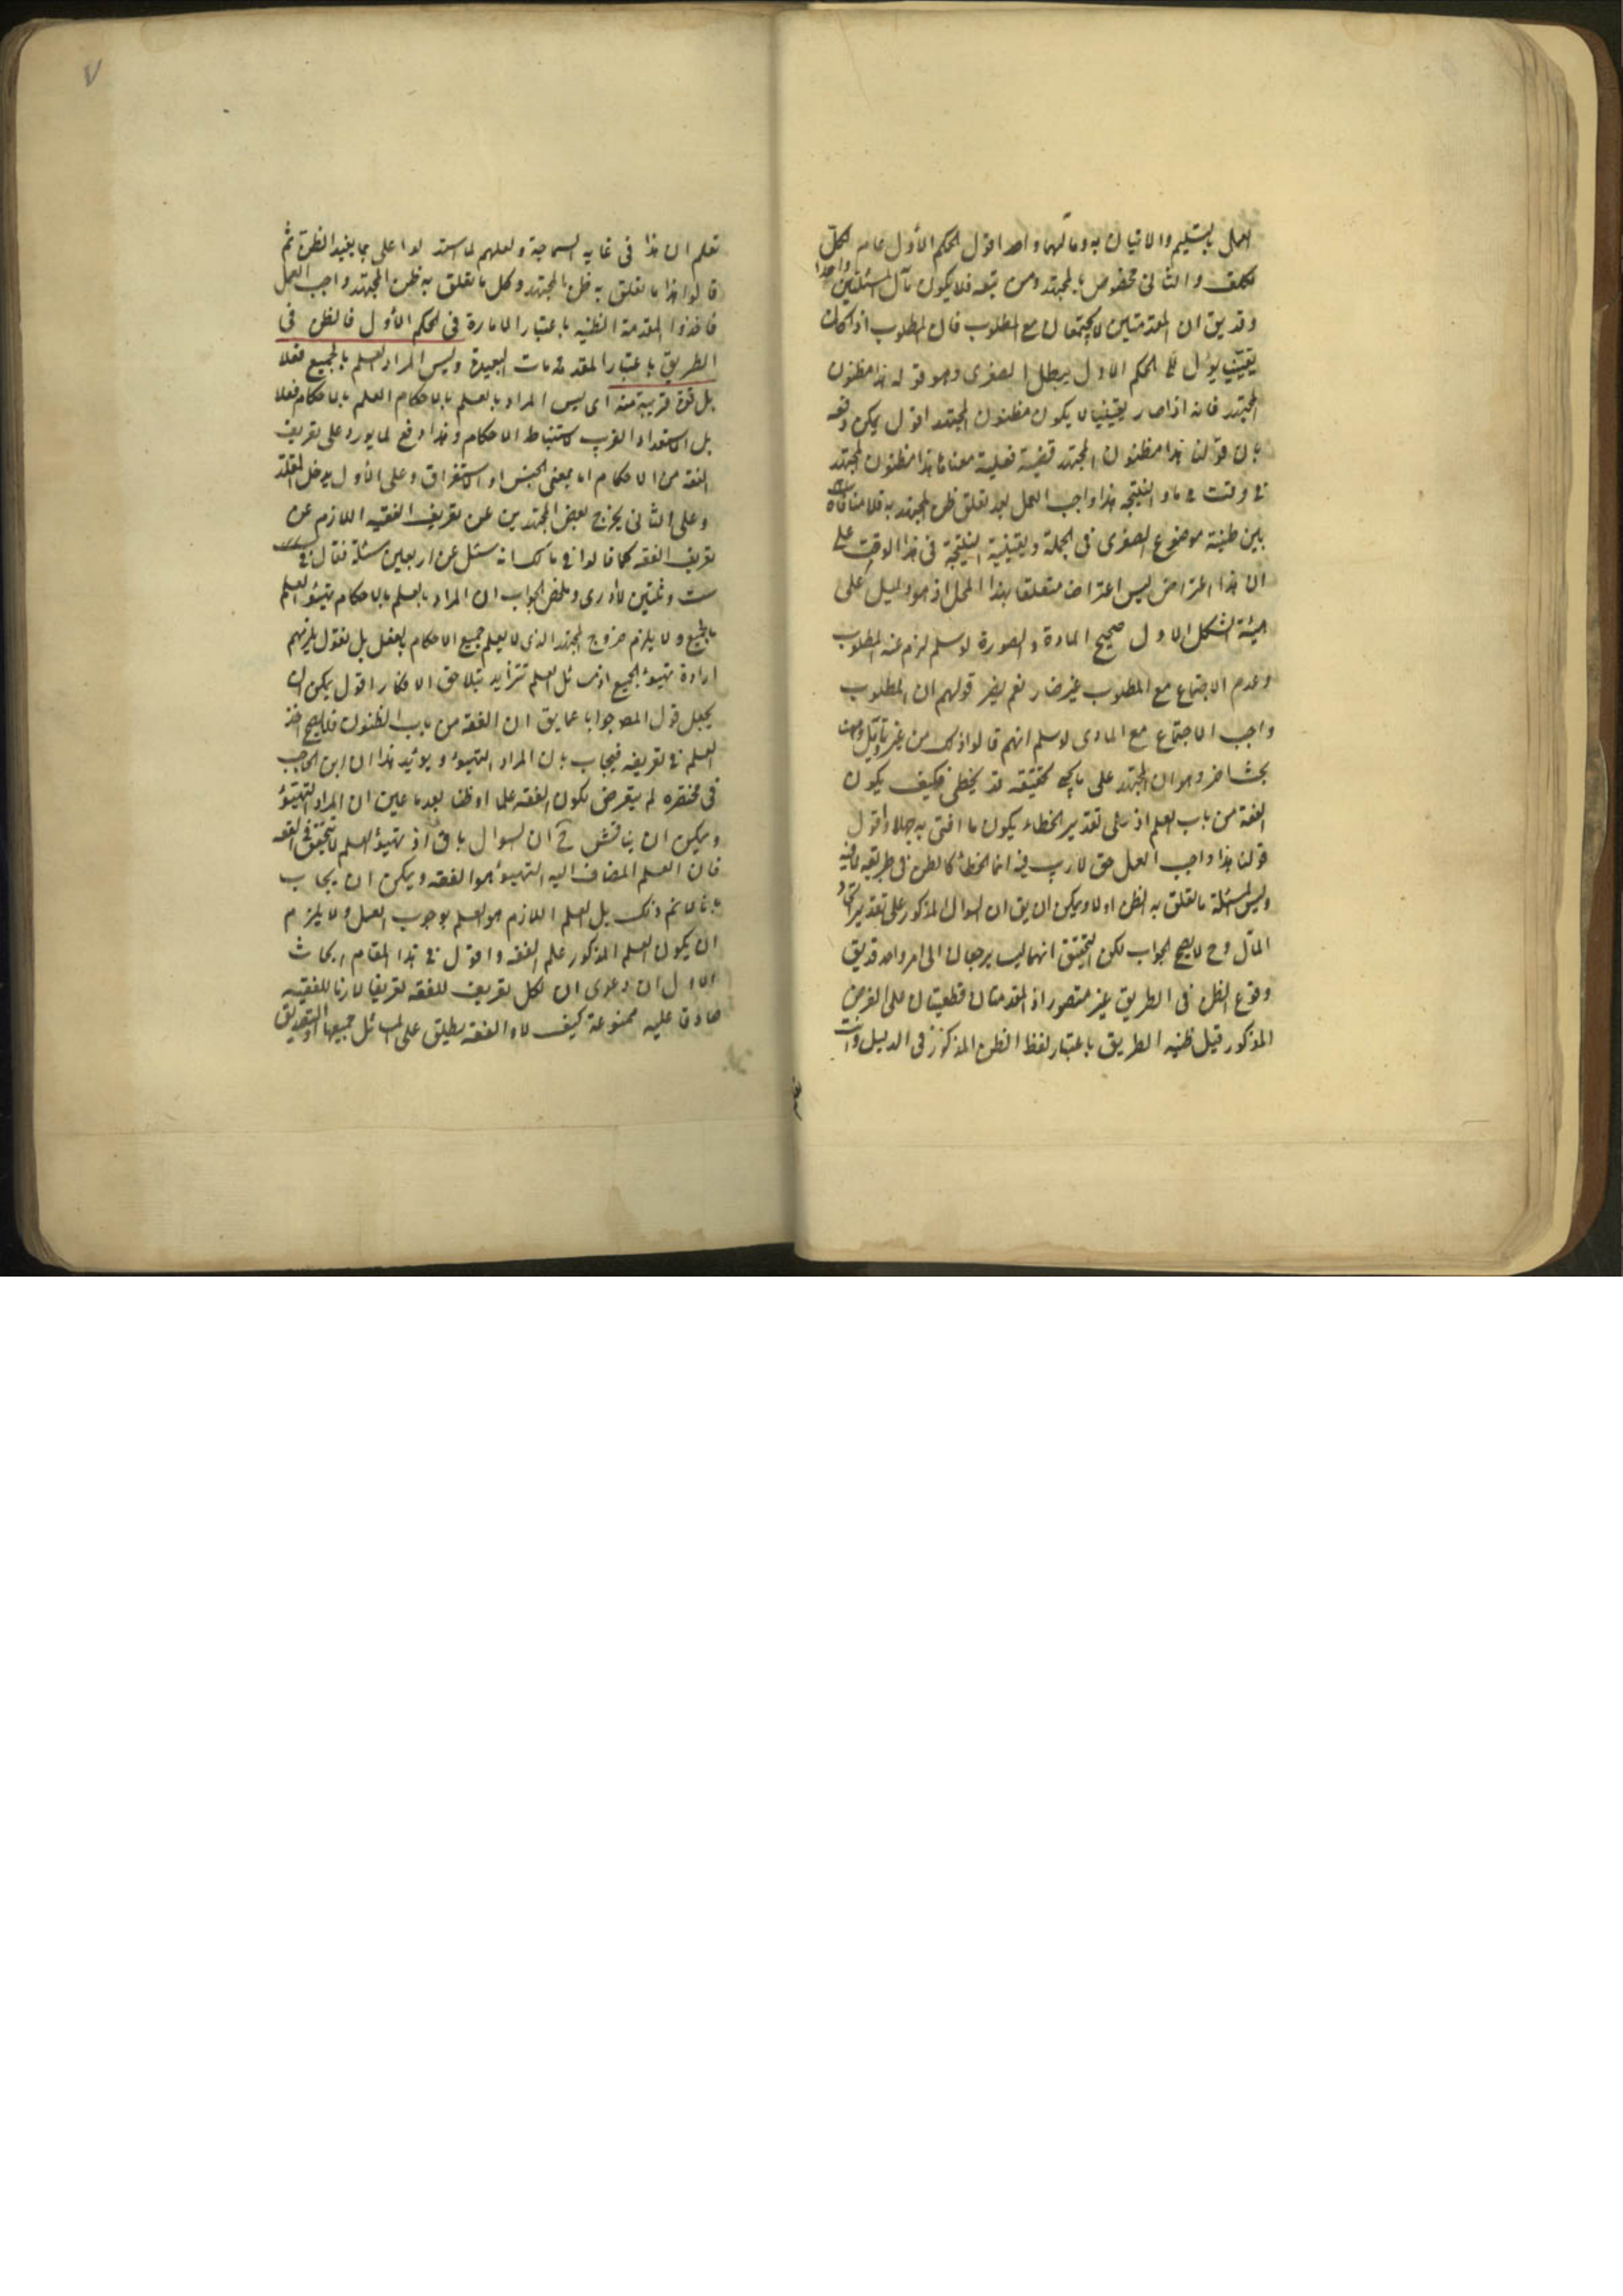 العمل بالتسليم والاتيان به وما لهما واحد اقول الحكم الأول عام لكل
مكلف والثانى مخصوص بالمجتهد ومن تبعه فلا يكون مآل المسئلتين واحدا
وقد يق ان المقدمتين لا يجتمعان مع المطلوب فان المطلوب اذا كان
يقينيا يؤل الحكم الاول يبطل الصغرى وهو قوله هذا مظنون
المجتهد فانه اذا صار يقينيا لا يكون مظنون المجتهد اقول يمكن دفعه
بان قولنا هذا مظنون المجتهد قضية فعلية معناها هذا مظنون المجتهد
فى وقت ما والنتيجة هذا واجب العمل بعد تعلق ظن المجتهد به فلا منافاة
بين ظنية موضوع الصغرى فى الجملة ويقينية النتيجة فى هذا الوقت على
ان هذا اعتراض ليس اعتراضا متعلقا بهذا المحل اذ هو دليل على
هيئة الشكل الاول صحيح المادة والصورة لو سلم لزم عنه المطلوب
وعدم الاجتماع مع المطلوب غير ضار نعم يضر قولهم ان المطلوب
واجب الاجتماع مع المبادى لو سلم انهم قالوا ذلك من غير تأويل وههنا
بحث اخر وهو ان المجتهد على ما يجئ تحقيقه قد يخطئ فكيف يكون
الفقه من باب العلم اذ على تقدير الخطاء يكون ما افتى به جهلا واقول
قولنا هذا واجب العمل حق لا ريب فيه انما الخطأ كالظن فى طريقه
وليس المسئلة ما تعلق به الظن اولا ويمكن ان يق ان السوال المذكور على تقدير اتحاد
المآل وح لا يصح الجواب لكن التحقيق انهما ليسا يرجعان الى امر واحد قد يق
وقوع الظن فى الطريق غير متصور اذ المقدمتان قطعيتان على الفرض
المذكور قيل ظنية الطريق باعتبار لفظ الظن المذكور فى الدليل وانت
تعلم ان هذا فى غاية السماجة ولعلهم لما استدلوا على بما يفيد الظن ثم
قالوا هذا ما تعلق به ظن المجتهد وكل ما تعلق به ظن المجتهد واجب العمل
فاخذوا المقدمة الظنية باعتبار الامارة فى الحكم الأول فالظن فى
الطريق باعتبار المقدمات البعيدة وليس المراد العلم بالجميع فعلا
بل قوة قريبة منه اى ليس المراد بالعلم بالاحكام العلم بالاحكام فعلا
بل الاستعداد القريب لاستنباط الاحكام وهذا دفع لما يورد على تعريف
الفقه من الاحكام اما بمعنى الجنس او الاستغراق وعلى الأول يدخل المقلد
وعلى الثانى يخرج بعض المجتهدين عن تعريف الفقيه اللازم عن
تعريف الفقه كما قالوا فى مالك انه سئل عن اربعين مسئلة فقال فى
ست وثلثين لا ادرى وملخص الجواب ان المراد بالعلم بالاحكام تهيئؤ العلم
بالجميع ولا يلزم خروج المجتهد الذى لا يعلم جميع الاحكام بالفعل بل نقول يلزمهم
ارادة تهيئؤ الجميع اذ مسائل العلم تتزايد بتلاحق الافكار اقول يمكن ان
يجعل قول المصـ جوابا عما يق ان الفقه من باب الظنون فلا يصح اخذ
العلم فى تعريفه فيجاب بان المراد التهيئؤ ويؤيد هذا ان ابن الحاجب
فى مختصره لم يتعرض لكون الفقه علما او ظنا بعد ما عين ان المراد التهيئؤ
ويمكن ان يناقش ح ان السوال باق اذ تهيئؤ العلم لا يتحقق فى الفقه
فان العلم المضاف اليه التهيئؤ هو الفقه ويمكن ان يجاب
بانا لا نم ذلك بل العلم اللازم هو العلم بوجوب العمل ولا يلزم
ان يكون العلم المذكور علم الفقه واقول فى هذا المقام ابحاث
الاول ان دعوى ان لكل تعريف للفقه تعريفا لازما للفقيه
صادقا عليه ممنوعة كيف لا والفقه يطلق على المسائل جميعها او التصديق